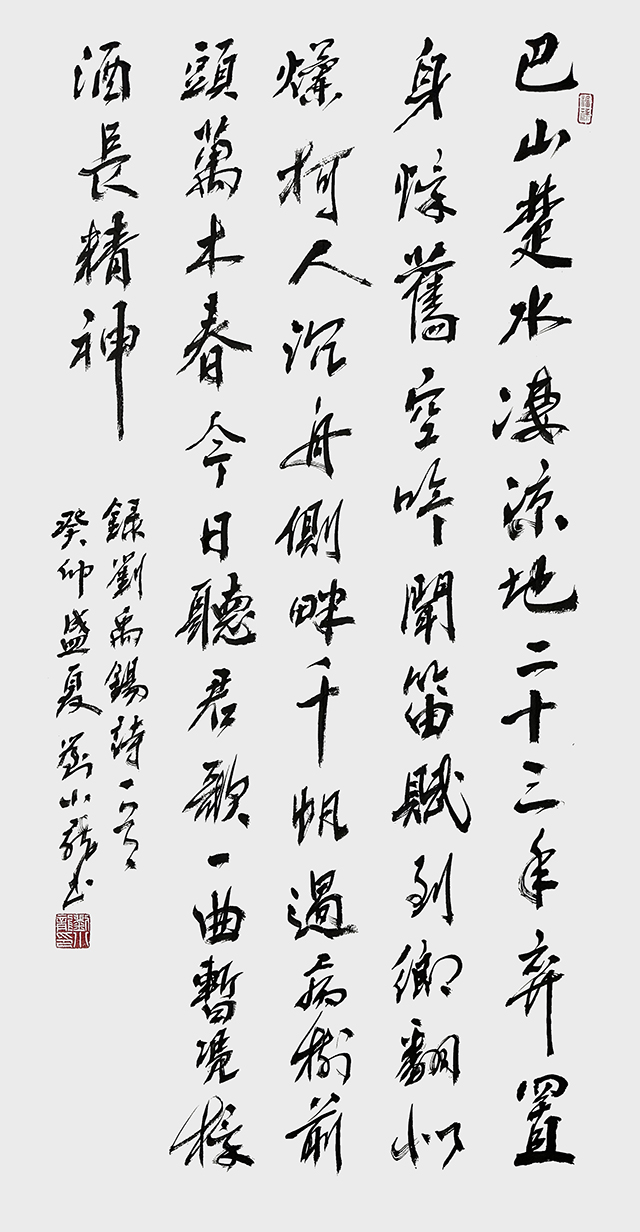 巴山楚水凄涼地二十三年弃置
身懷舊空吟聞笛賦到鄉翻似
爛柯人沉舟側畔千帆過病樹前
頭萬木春今日聽君歌一曲暫凴杯
酒長精神
錄劉禹錫詩一首
癸卯盛夏劉小龍書
劉小龍印